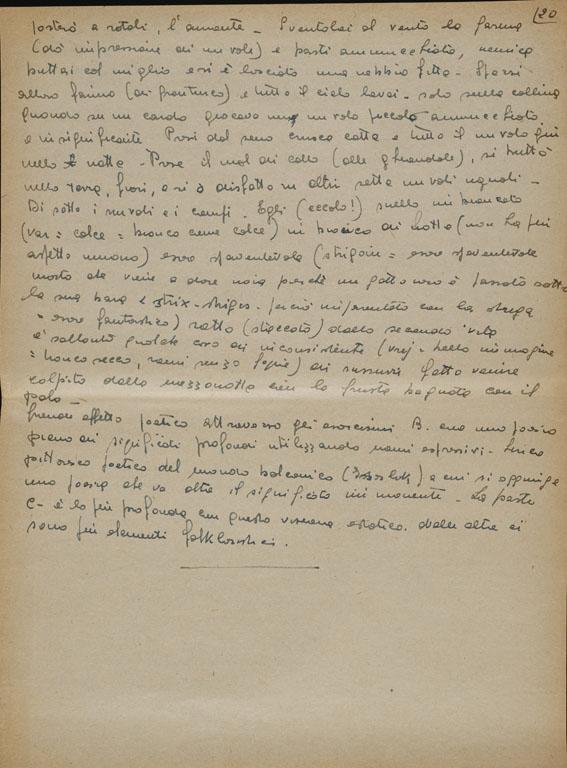 20
a rotoli, l'aumento - Sventolai al vento la farina
(dà impressione di nuvole) e pasti ammucchiato,
buttai col miglio e si è lasciato una nebbia fitta - Sparsi
allora farina (di frantusco) e tutto il cielo lavai - solo sulla collina
quando su un un nuvolo piccolo ammucchiato
e insignificante Presi dal seno crusca cotta e tutto il nuvolo
nella notte - Prese il mal di collo (alle ghiandole), si buttò
nella terra, fuori, e si è disfatto in altri sette nuvoli uguali -
Di sotto i nuvoli e i campi. Egli (eccolo!) snello imbiancato
(var = calce = bianco come calce) in bianco di notte (non ha più
aspetto umano) esso spaventevole (strigoiu = esso spaventevole
morto che viene a dare noia perché un gatto nero è passato sotto
la sua bara strix-strigis. la strega
= esso fantastico) ratto (staccato) dalla seconda vita
è soltanto di inconsistente (vrej = bella immagine
= bianco secco, rami senza foglie) di sussurri fatto venire
colpito dalla mezzanotte con la frusta bagnata con il
palo -
Grande effetto poetico attraverso gli esorcismi B. crea una poesia
piena di significati profondi utilizzando nomi espressivi -
pittoresco poetico del mondo balcanico (Isarlîk) a cui si aggiunge
una poesia che va oltre il significato immanente - La parte
C - è la più profonda con questa visione estatica. dalle altre ci
sono più elementi folkloristici.